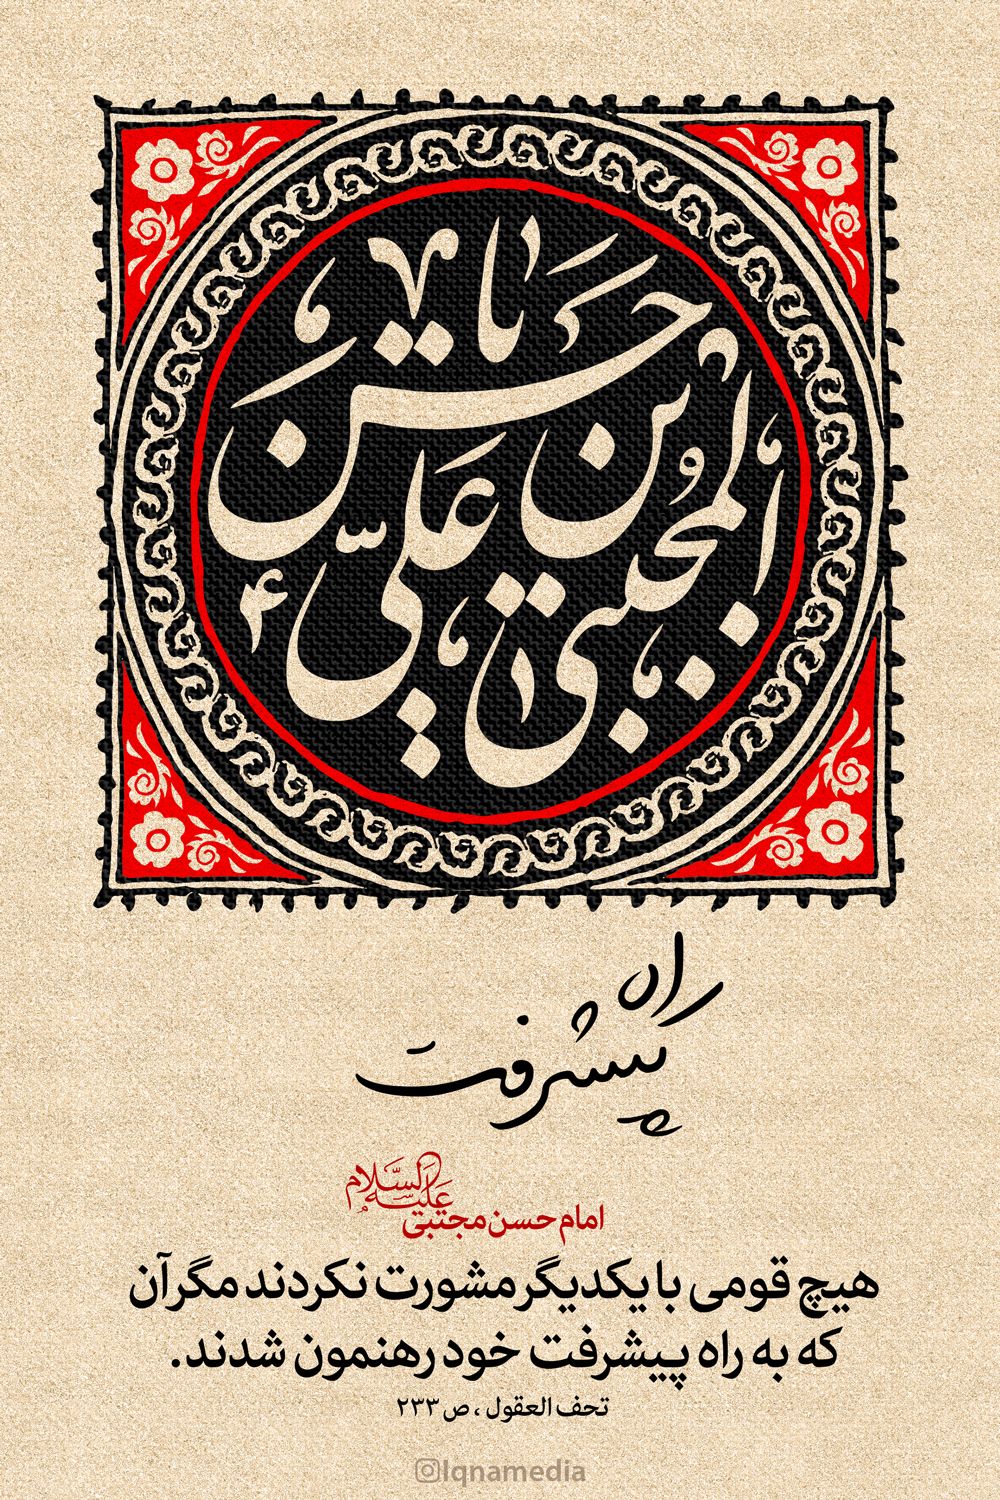 یا حسن
بن علی
المجتبی
راه
پیشرفت
امام حسن مجتبی علیه السلام
هیچ قومی با یکدیگر مشورت نکردند مگر آن
که به راه پیشرفت خود رهنمون شدند.
تحف العقول ، ص ۲۳۳
Iqnamedia